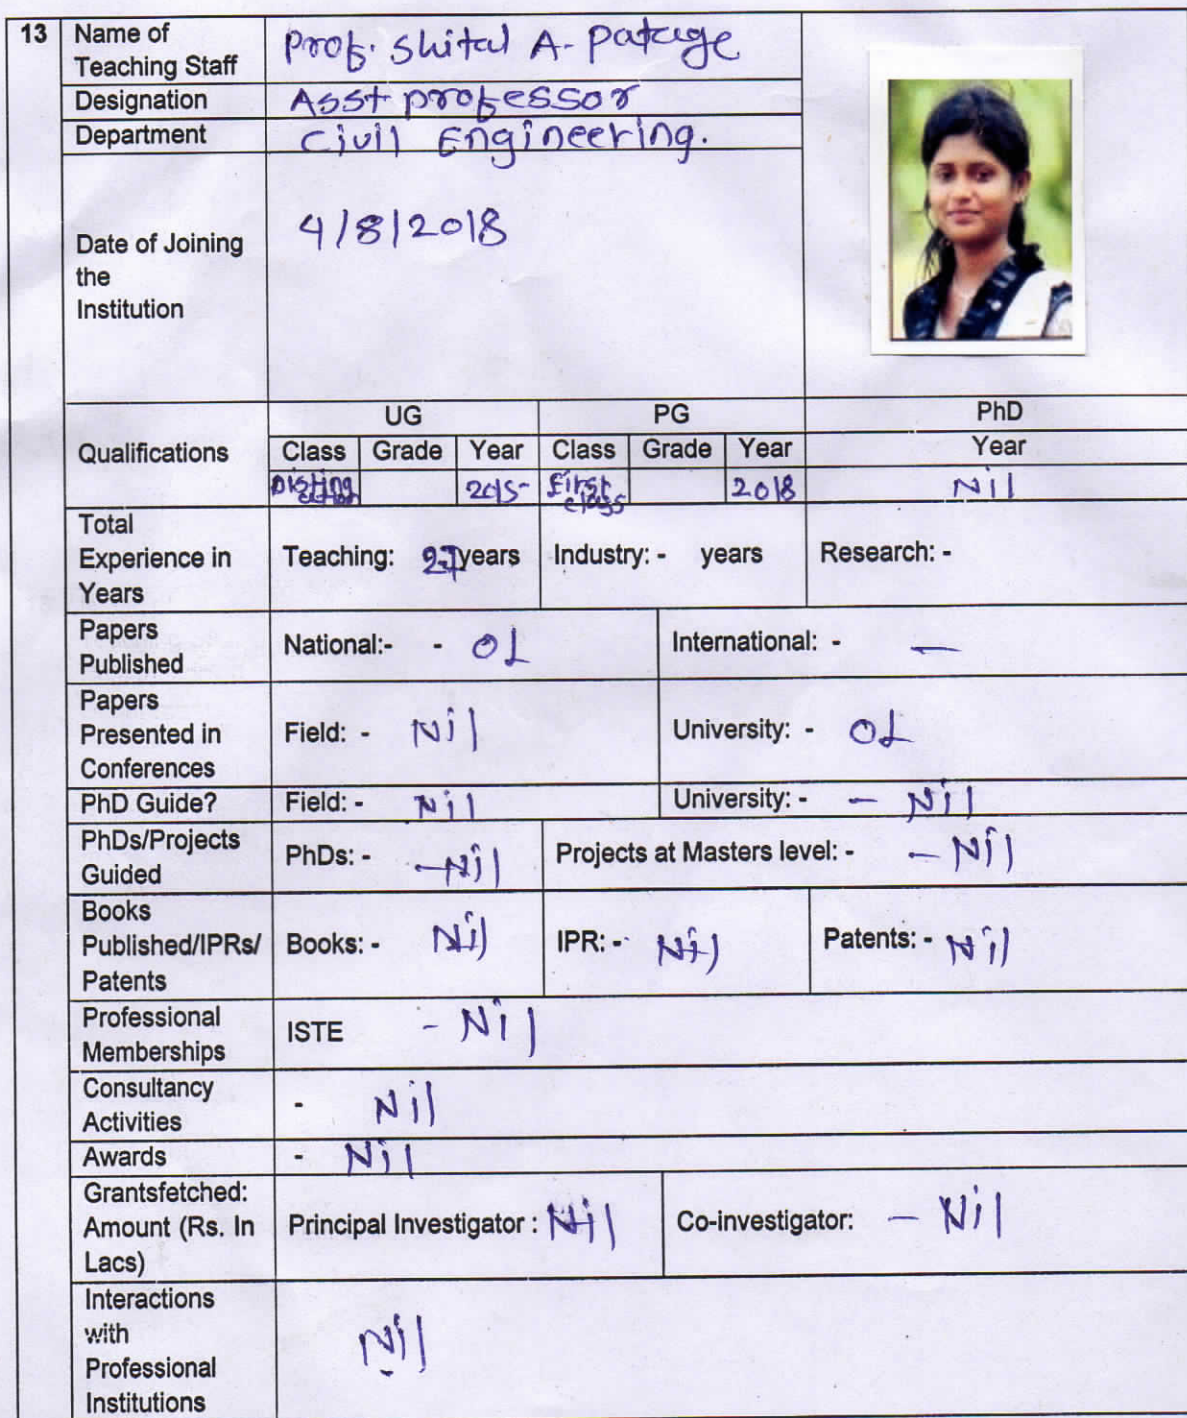 13 Name of Teaching Staff Prof. Shital A. Patage
Designation Asst professor
Department Civil Engineering.
Date of Joining the Institution 4/8/2018
Qualifications UG PG PhD
Class Grade Year Class Grade Year Year
Distinction 2015 First class 2018 Nil
Total Experience in Years Teaching: years Industry: - years Research: -
Papers Published National:- - 01 International: - —
Papers Presented in Conferences Field: - Nil University: - 01
PhD Guide? Field: - Nil University: - – Nil
PhDs/Projects Guided PhDs: - – Nil Projects at Masters level: - – Nil
Books Published/IPRs/ Patents Books: - Nil IPR: - Nil Patents: - Nil
Professional Memberships ISTE - Nil
Consultancy Activities - Nil
Awards - Nil
Grantsfetched: Amount (Rs. In Lacs) Principal Investigator : Nil Co-investigator: – Nil
Interactions with Professional Institutions Nil